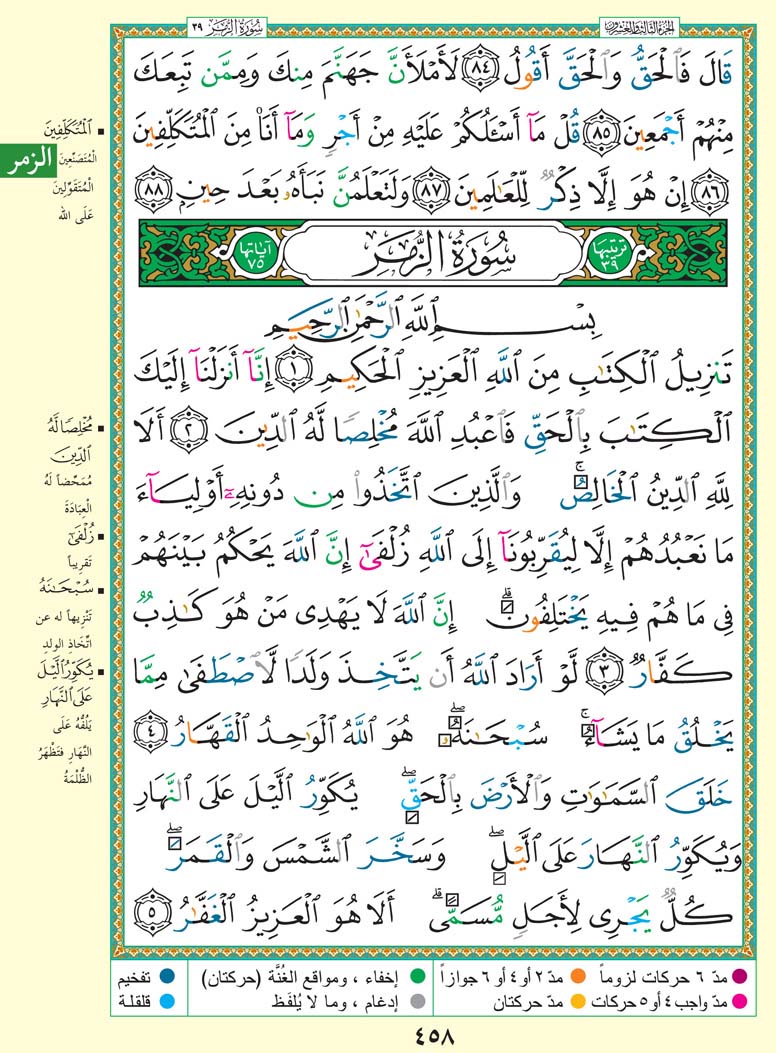 الجزء الثالث والعشرون
سُورَةُ الزُّمَر ٣٩
قَالَ فَٱلْحَقُّ وَٱلْحَقَّ أَقُولُ ٨٤ لَأَمْلَأَنَّ جَهَنَّمَ مِنكَ وَمِمَّن تَبِعَكَ
مِنْهُمْ أَجْمَعِينَ ٨٥ قُلْ مَآ أَسْـَٔلُكُمْ عَلَيْهِ مِنْ أَجْرٍ وَمَآ أَنَا۠ مِنَ ٱلْمُتَكَلِّفِينَ
٨٦ إِنْ هُوَ إِلَّا ذِكْرٌ لِّلْعَـٰلَمِينَ ٨٧ وَلَتَعْلَمُنَّ نَبَأَهُۥ بَعْدَ حِينٍۭ ٨٨
تَرتيبها ٣٩
سُورَةُ الزُّمَر
آياتها ٧٥
بِسْمِ ٱللَّهِ ٱلرَّحْمَـٰنِ ٱلرَّحِيمِ
تَنزِيلُ ٱلْكِتَـٰبِ مِنَ ٱللَّهِ ٱلْعَزِيزِ ٱلْحَكِيمِ ١ إِنَّآ أَنزَلْنَآ إِلَيْكَ
ٱلْكِتَـٰبَ بِٱلْحَقِّ فَٱعْبُدِ ٱللَّهَ مُخْلِصًا لَّهُ ٱلدِّينَ ٢ أَلَا
لِلَّهِ ٱلدِّينُ ٱلْخَالِصُ ۚ وَٱلَّذِينَ ٱتَّخَذُوا۟ مِن دُونِهِۦٓ أَوْلِيَآءَ
مَا نَعْبُدُهُمْ إِلَّا لِيُقَرِّبُونَآ إِلَى ٱللَّهِ زُلْفَىٰٓ إِنَّ ٱللَّهَ يَحْكُمُ بَيْنَهُمْ
فِى مَا هُمْ فِيهِ يَخْتَلِفُونَ ۗ إِنَّ ٱللَّهَ لَا يَهْدِى مَنْ هُوَ كَـٰذِبٌ
كَفَّارٌ ٣ لَّوْ أَرَادَ ٱللَّهُ أَن يَتَّخِذَ وَلَدًا لَّٱصْطَفَىٰ مِمَّا
يَخْلُقُ مَا يَشَآءُ ۚ سُبْحَـٰنَهُۥ ۖ هُوَ ٱللَّهُ ٱلْوَٰحِدُ ٱلْقَهَّارُ ٤
خَلَقَ ٱلسَّمَـٰوَٰتِ وَٱلْأَرْضَ بِٱلْحَقِّ ۖ يُكَوِّرُ ٱلَّيْلَ عَلَى ٱلنَّهَارِ
وَيُكَوِّرُ ٱلنَّهَارَ عَلَى ٱلَّيْلِ ۖ وَسَخَّرَ ٱلشَّمْسَ وَٱلْقَمَرَ ۖ
كُلٌّ يَجْرِى لِأَجَلٍ مُّسَمًّى ۗ أَلَا هُوَ ٱلْعَزِيزُ ٱلْغَفَّـٰرُ ٥
ٱلْمُتَكَلِّفِينَ
المُتَصَنِّعِينَ
المُتَقَوِّلِينَ
عَلَى الله
الزمر
مُخْلِصًا لَّهُ
ٱلدِّينَ
مُمَحِّضاً لَهُ
العِبَادَةَ
زُلْفَىٰٓ
تَقْرِيباً
سُبْحَـٰنَهُۥ
تَنْزِيهاً له عن
اتِّخَاذِ الولدِ
يُكَوِّرُ ٱلَّيْلَ
عَلَى ٱلنَّهَارِ
يَلُفُّهُ عَلَى
النَّهَارِ فَتَظْهَرُ
الظُّلْمَةُ
مدّ ٦ حركات لزوماً
مدّ ٢ أو ٤ أو ٦ جوازاً
إخفاء ، ومواقع الغُنَّة (حركتان)
تفخيم
مدّ واجب ٤ أو ٥ حركات
مدّ حركتان
إدغام ، وما لا يُلفَظ
قلقلة
٤٥٨